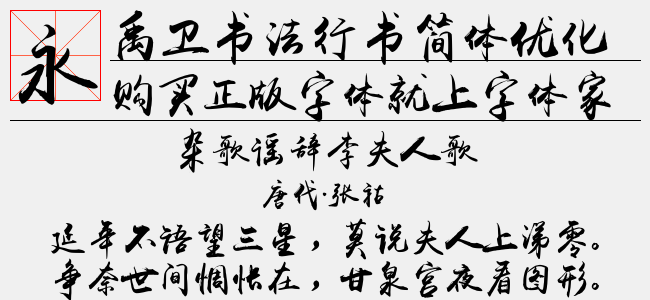 永
禹卫书法行书简体优化
购买正版字体就上字体家
杂歌谣辞李夫人歌
唐代·张祜
延年不语望三星，莫说夫人上涕零。
争奈世间惆怅在，甘泉宫夜看图形。